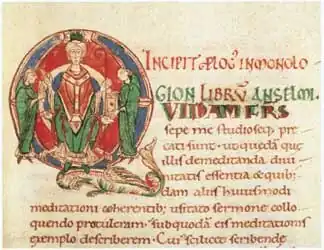 INCIPIT PLOG' IN MONOLO
GION LIBRV ANSELMI.
QVIDAM FRS
sepe me studioseq; pre
cati sunt. ut quedã que
illis de meditanda divi
nitatis essentia & quib;
dam aliis huiusmodi
meditationi coherentib; usitato sermone collo
quendo protuleram. sub quodã eis meditationis
exemplo describerem. Cui' scilicet scribende